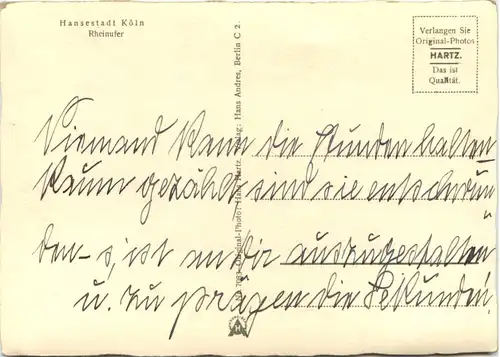 Hansestadt Köln
Rheinufer
Verlangen Sie
Original-Photos
HARTZ.
Das ist
Qualität.
Original-Photo: Hans Hartz. Verlag: Hans Andres, Berlin C 2.
Niemand kann die Stunden halten
Kaum gezählt sind sie entschwun
den - s'ist an dir auszugestalten
u. zu prägen die Sekunden